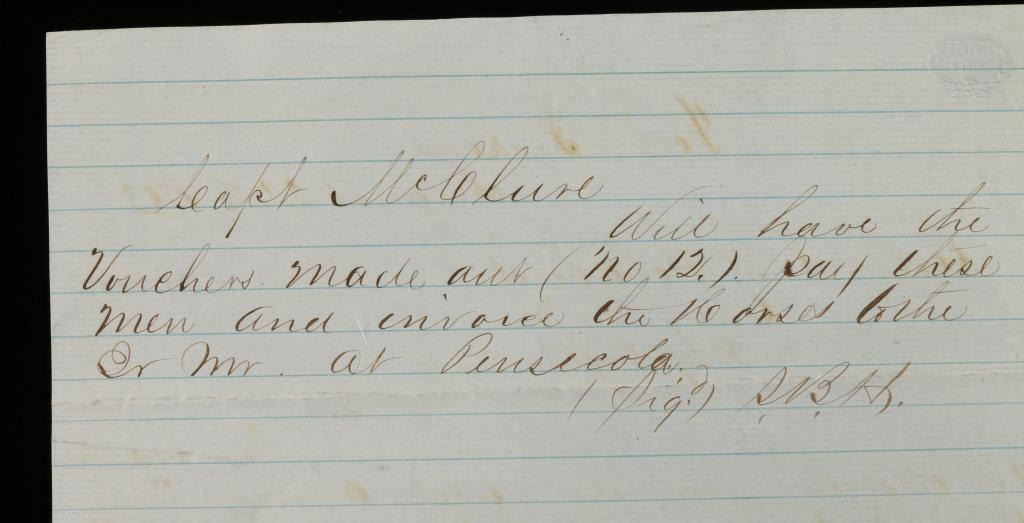 Capt McClure
Will have the
Vouchers made out (No 12.). pay these
men and invoice the Horses to the
Qr Mr. at Pensecola.
(Sigd) S.B.H.